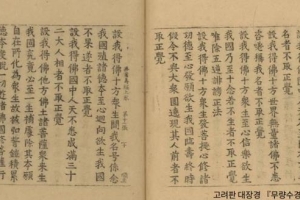 名者不取正覺
設我得佛十方世界無量諸佛不悉
咨嗟稱我名者不取正覺
設我得佛十方衆生至心信樂欲生
我國乃至十念若不生者不取正覺
唯除五逆誹謗正法
設我得佛十方衆生發菩提心修諸
功德至心發願欲生我國臨壽終時
假令不與大衆圍遶現其人前者不
取正覺
設我得佛十方衆生聞我名号係念
我國殖諸德本至心迴向欲生我國
不果遂者不取正覺
設我得佛國中人天不悉成滿三十
二大人相者不取正覺
設我得佛他方佛土諸菩薩衆來生
我國究竟必至一生補處除其本願
自在所化爲衆生故被弘誓鎧積累
德本度脫一切遊諸佛國修菩薩
고려판 대장경 『무량수경